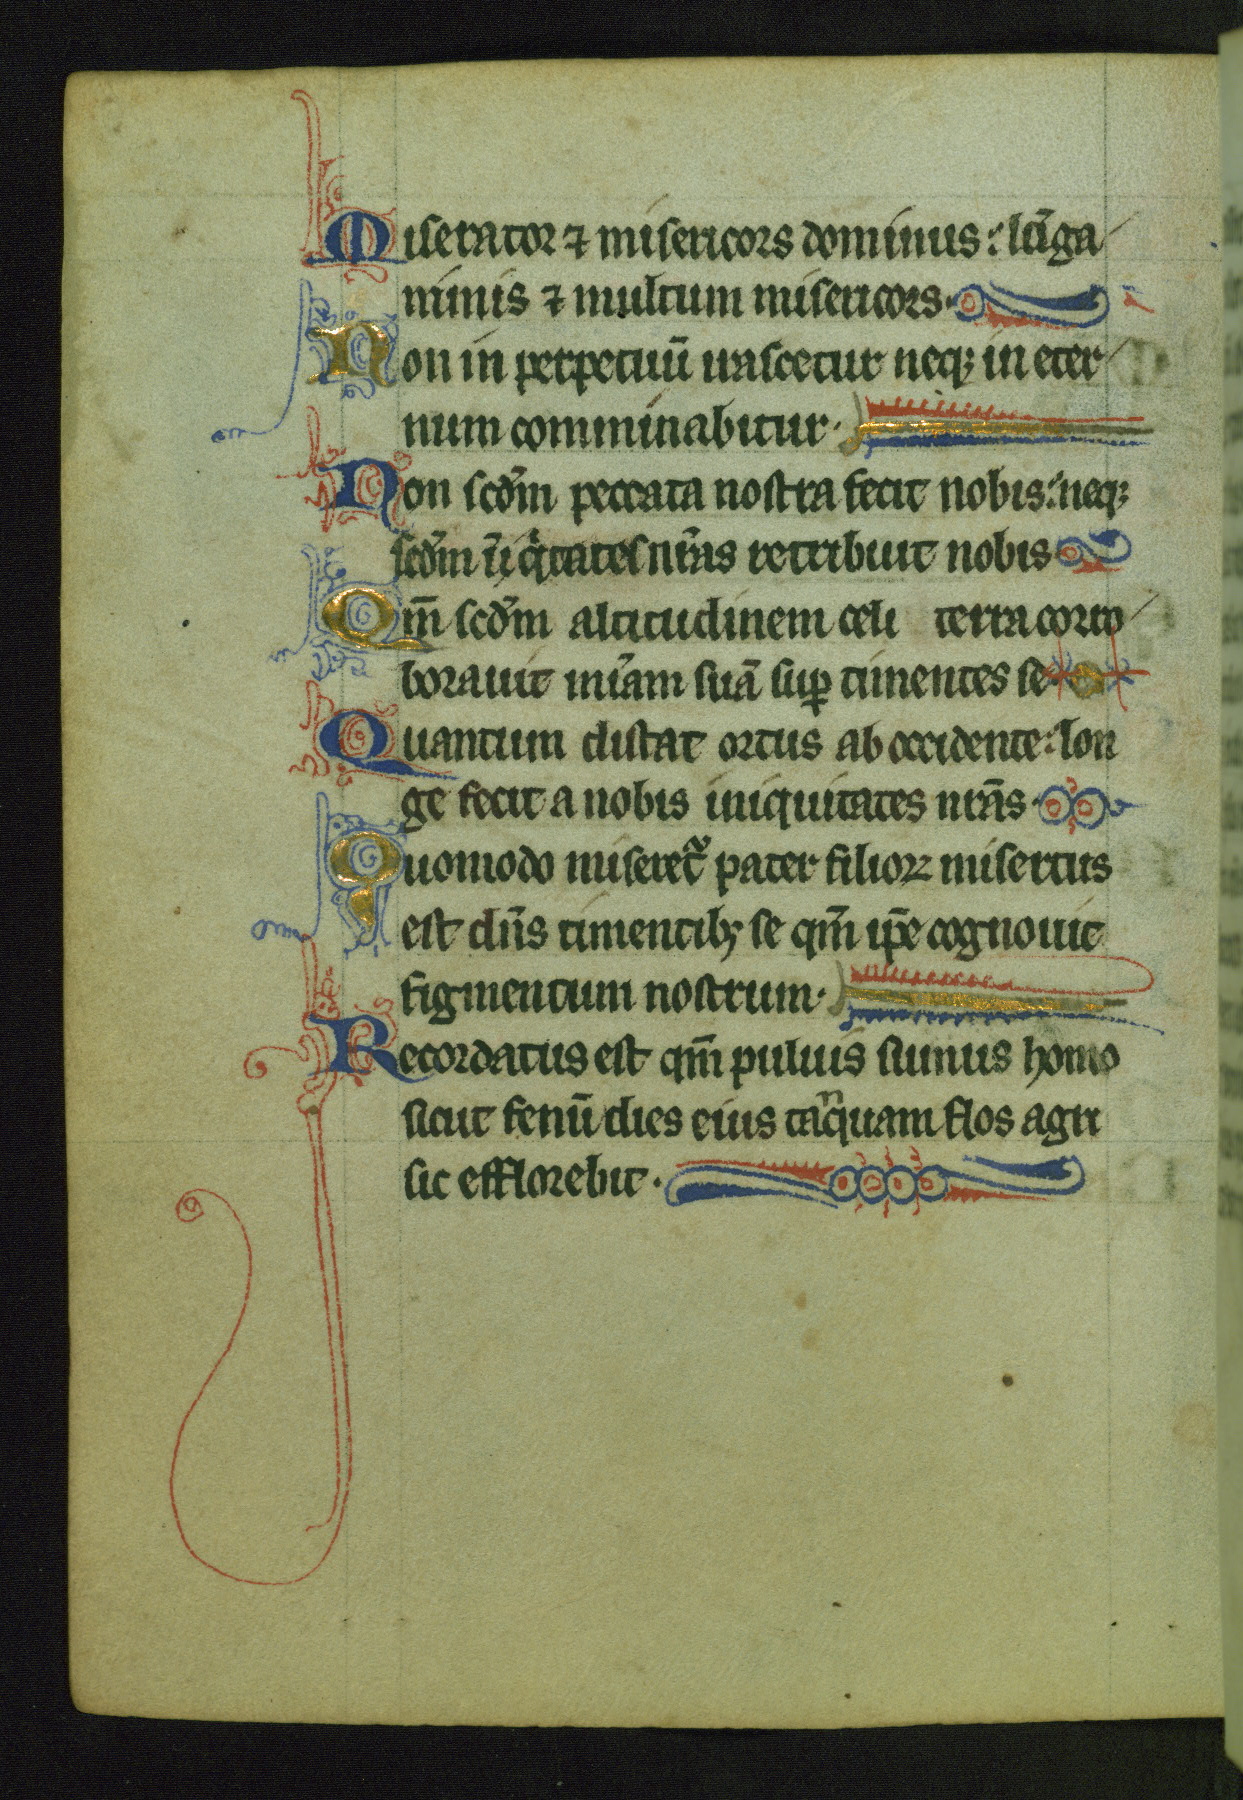 Miserator ⁊ misericors dominus: lũga
nimis ⁊ multum misericors.
Non in perpetuũ irascetur neqꝫ in eter
num comminabitur.
Non scđm peccata nostra fecit nobis: neqꝫ
scđm iniqͥtates nr̃as retribuit nobis
Qm̃ scđm altitudinem celi terra corro
borauit mĩam suã suꝑ timentes se.
Quantum distat ortus ab occidente: lon
ge fecit a nobis iniquitates nrãs.
Quomodo miseret᷑ pater filioꝝ misertus
est dñs timentibꝫ se qm̃ ip̃e cognouit
figmentum nostrum.
Recordatus est qm̃ puluis sumus homo
sicut fenũ dies eius tanquam flos agri
sic efflorebit.